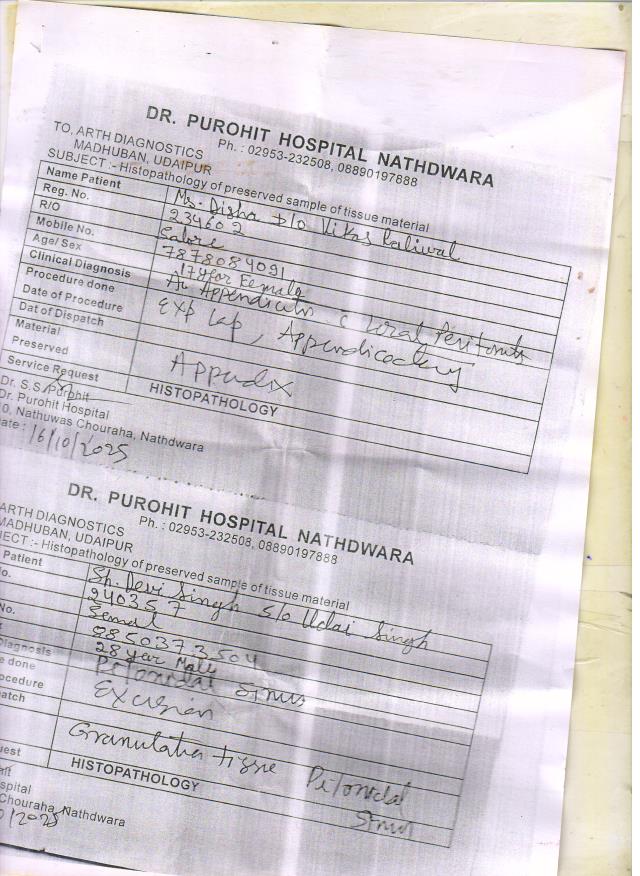 DR. PUROHIT HOSPITAL NATHDWARA
Ph. : 02953-232508, 08890197888
TO, ARTH DIAGNOSTICS
MADHUBAN, UDAIPUR
SUBJECT :- Histopathology of preserved sample of tissue material
Name Patient Ms. Disha D/o Vikas Paliwal
Reg. No. 234602
R/O
Mobile No. 7878084091
Age/ Sex 17 year Female
Clinical Diagnosis Ac Appendicitis c Local Peritonitis
Procedure done Exp Lap, Appendicectomy
Date of Procedure
Dat of Dispatch
Material Appendix
Preserved
Service Request HISTOPATHOLOGY
Dr. S.S.Purohit
Dr. Purohit Hospital
0, Nathuwas Chouraha, Nathdwara
ate : 16/10/2025
DR. PUROHIT HOSPITAL NATHDWARA
Ph. : 02953-232508, 08890197888
ARTH DIAGNOSTICS
MADHUBAN, UDAIPUR
JECT :- Histopathology of preserved sample of tissue material
Patient Sh. Devi Singh S/o Udai Singh
o. 240357
Semal
No. 9850373504
28 year Male
Diagnosis Pilonidal Sinus
e done Excision
ocedure
patch
Granulation tissue Pilonidal
Sinus
uest HISTOPATHOLOGY
hit
spital
Chouraha, Nathdwara
0/2025